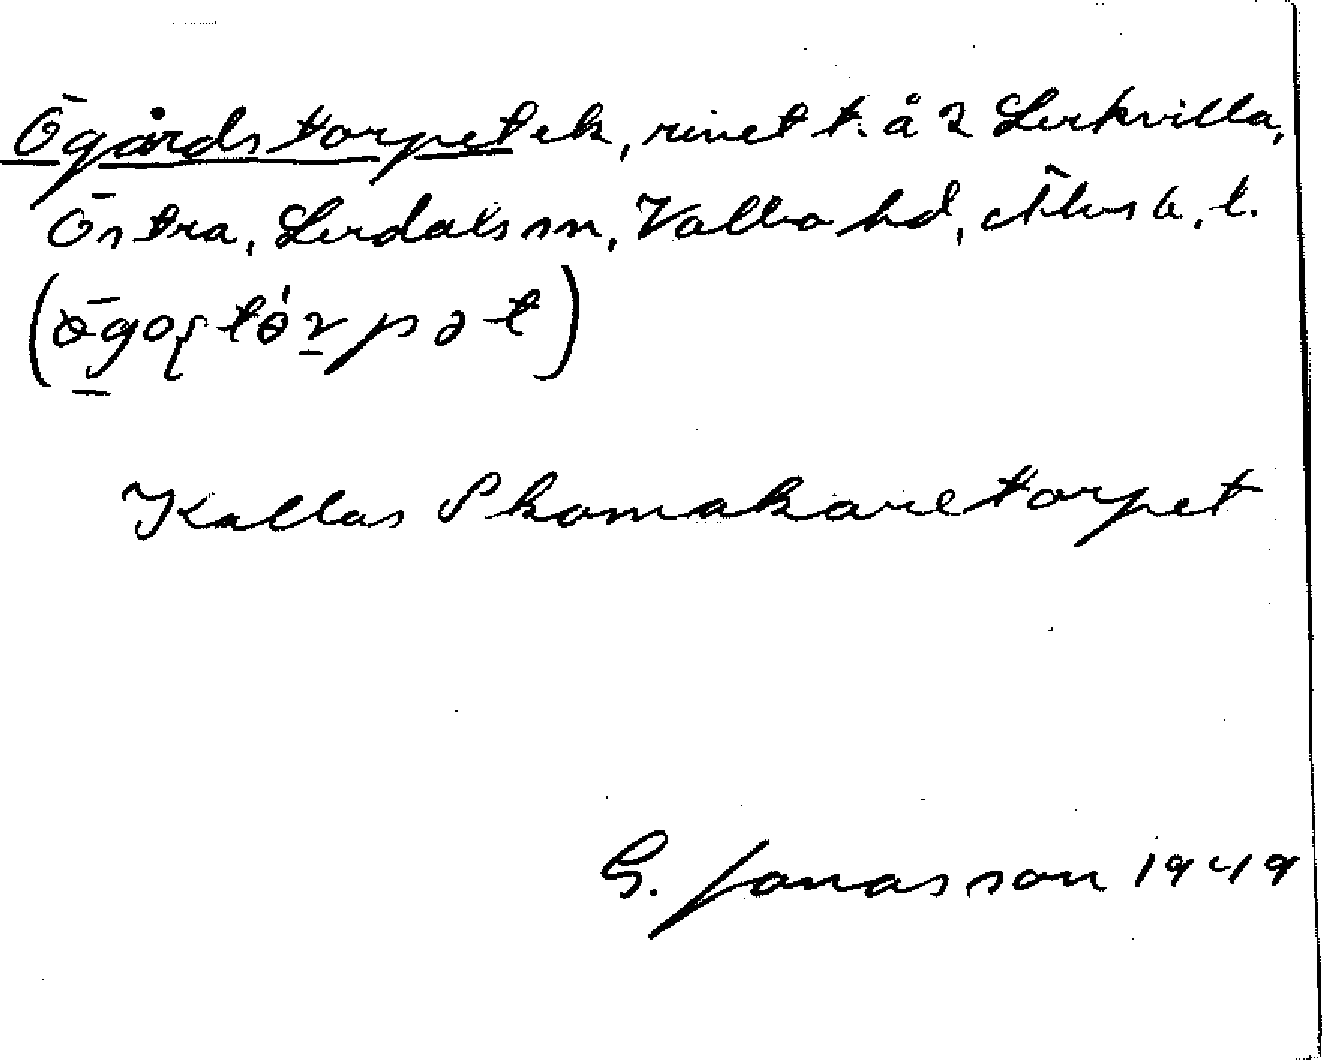 Ögårdstorpet ek, rivet t. å 2 Lerkvilla,
Östra, Lerdals sn, Valbo hd, Älvsb. l.
(ögoʂtórpət)
Kallas Skomakaretorpet
G. Jonasson 1949